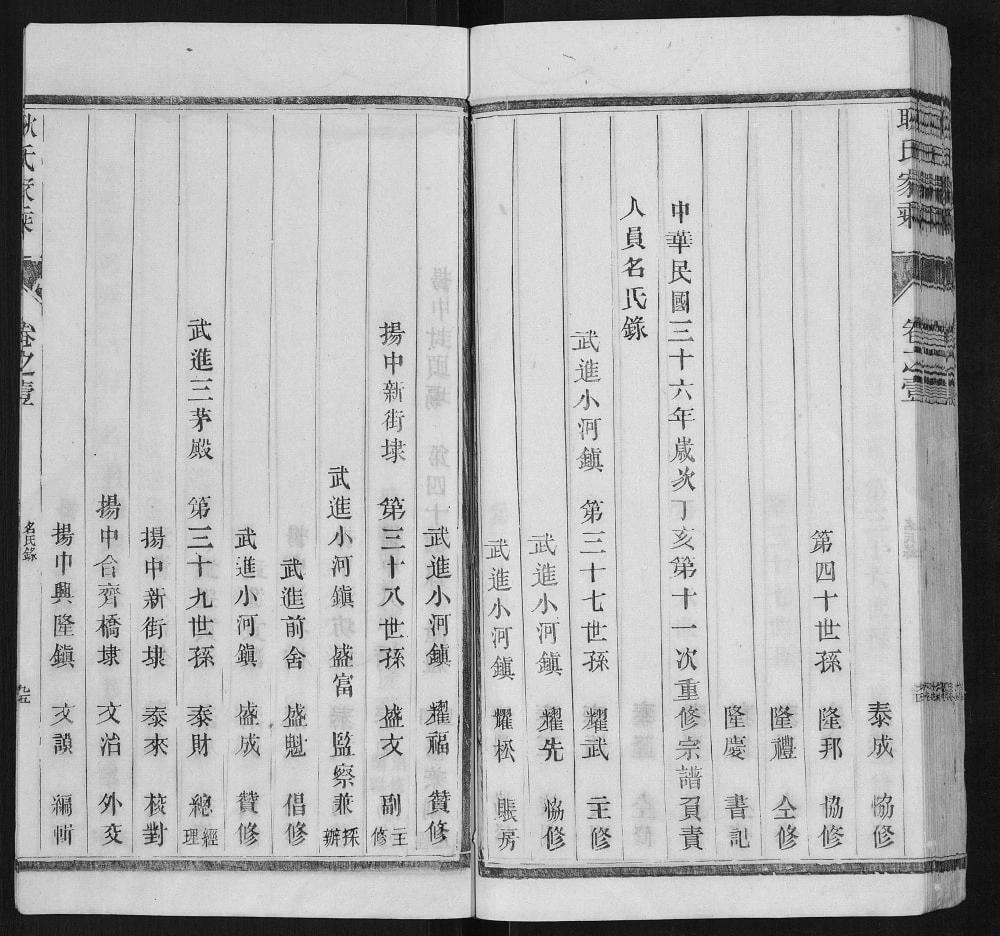 耿氏家乘 卷之壹
泰成 恊修
第四十世孫 隆邦 恊修
隆禮 仝修
隆慶 書記
中華民國三十六年歲次丁亥第十一次重修宗譜負責
人員名氏錄
武進小河鎮 第三十七世孫 耀武 主修
武進小河鎮 耀先 恊修
武進小河鎮 耀松 賬房
武進小河鎮 耀福 贊修
揚中新街埭 第三十八世孫 盛文 副主修
武進小河鎮 盛富 監察兼採辦
武進前舍 盛魁 倡修
武進小河鎮 盛成 贊修
武進三茅殿 第三十九世孫 泰財 總經理
揚中新街埭 泰來 核對
揚中合齊橋埭 文治 外交
揚中興隆鎮 文韻 編
耿氏家乘 卷之壹 名氏錄 九五